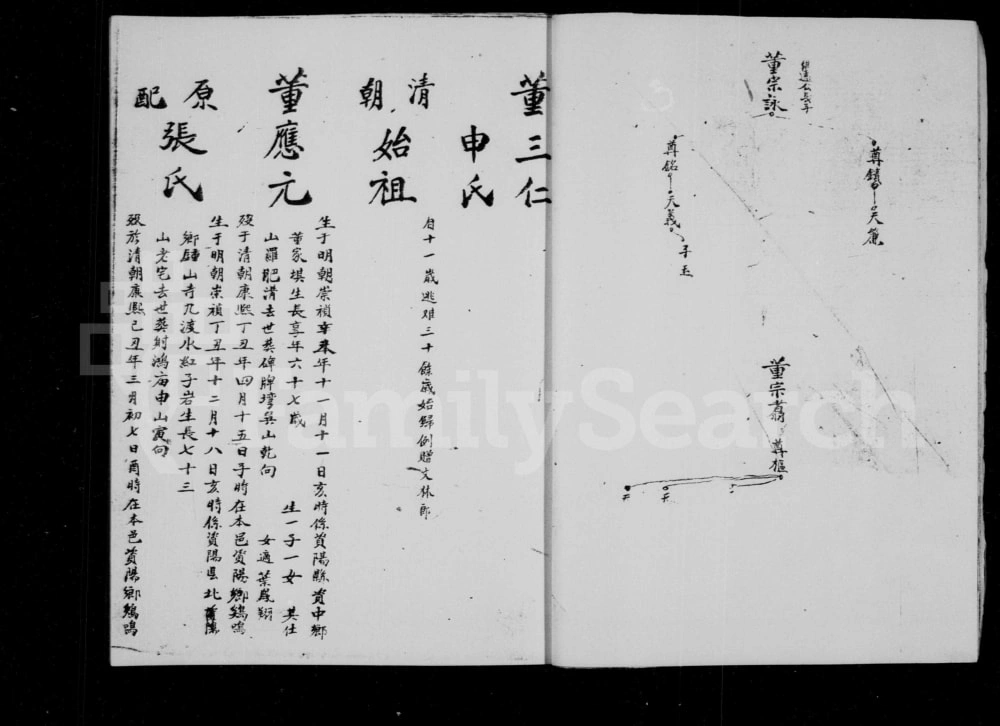 紹遠公長子
董宗詠
尊鎮 天篪
尊銘 天義 子玉
董宗蕩 尊樞
董三仁
申氏
清朝始祖
自十一歲逃难三十餘歲始歸例贈文林郎
董應元
生于明朝崇禎辛未年十一月十一日亥時係資陽縣資中鄉
董家埧生長享年六十七歲 生一子一女 其仕
山羅肥溝去世葬碑牌塆巽山乾向 女適葉鳳翔
歿于清朝康熙丁丑年四月十五日子時在本邑資陽鄉鷄鳴
原配張氏
生于明朝崇禎丁丑年十二月十八日亥時係資陽县北資陽
鄉鍾山寺九渡水紅子岩生長七十三
山老宅去世葬射鴻庙申山寅向
歿於清朝康熙己丑年三月初七日酉時在本邑資陽鄉鷄鳴
FamilySearch